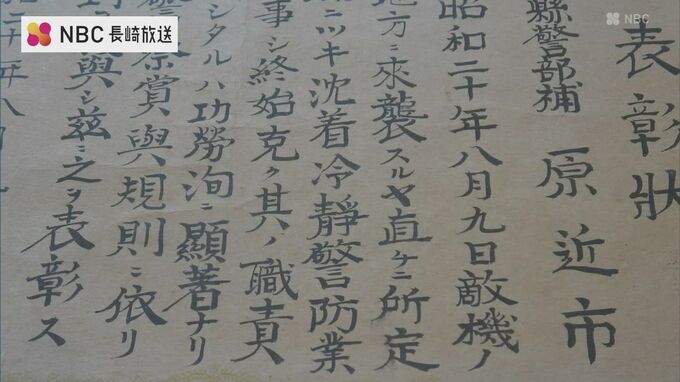 NBC 長崎放送
NBC
表彰狀
縣警部補 原近市
昭和二十年八月九日敵機ノ
地方ニ來襲スルヤ直ケニ所定
ニツキ沈着冷靜警防業
事シ終始克ク其ノ職責
シタルハ功勞洵ニ顯著ナリ
察賞與規則ニ依リ
與シ茲ニ之ヲ表彰ス
二十年八月